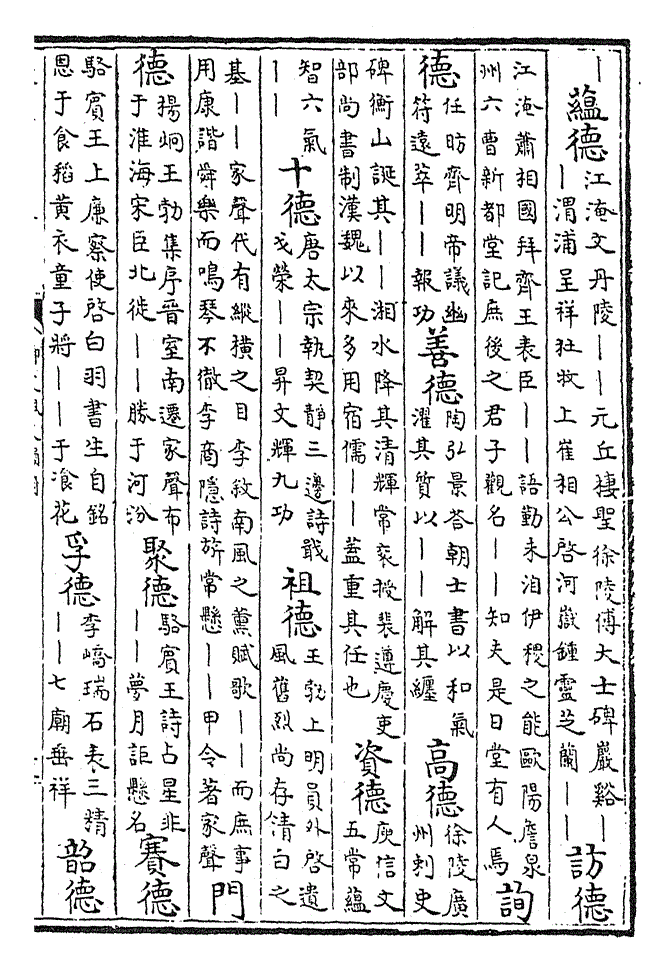 ｜
蘊德
江淹文丹陵｜｜元丘棲聖徐陵傅大士碑巖谿｜
｜渭浦呈祥杜牧上崔相公啓河嶽鍾靈芝蘭｜｜
訪德
江淹蕭相國拜齊王表臣｜｜語勤未洎伊稷之能歐陽詹泉
州六曹新都堂記庶後之君子觀名｜｜知夫是日堂有人焉
詢
德
任昉齊明帝議幽
符遠萃｜｜報功
善德
陶弘景答朝士書以和氣
濯其質以｜｜解其纏
高德
徐陵廣
州刺史
碑衡山誕其｜｜湘水降其清輝常衮授裴遵慶吏
部尚書制漢魏以來多用宿儒｜｜蓋重其任也
資德
庾信文
五常蘊
智六氣
｜｜
十德
唐太宗執契靜三邊詩戢
戈榮｜｜昇文輝九功
祖德
王勃上明員外啓遺
風舊烈尚存清白之
基｜｜家聲代有縱橫之目李敘南風之薰賦歌｜｜而庶事
用康諧舜樂而鳴琴不徹李商隱詩旂常懸｜｜甲令著家聲
門
德
揚炯王勃集序晉室南遷家聲布
于淮海宋臣北徙｜｜勝于河汾
聚德
駱賓王詩占星非
｜｜夢月詎懸名
賽德
駱賓王上廉察使啓白羽書生自銘
恩于食稻黃衣童子將｜｜于飡花
孚德
李嶠瑞石表三精
｜｜七廟垂祥
韶德